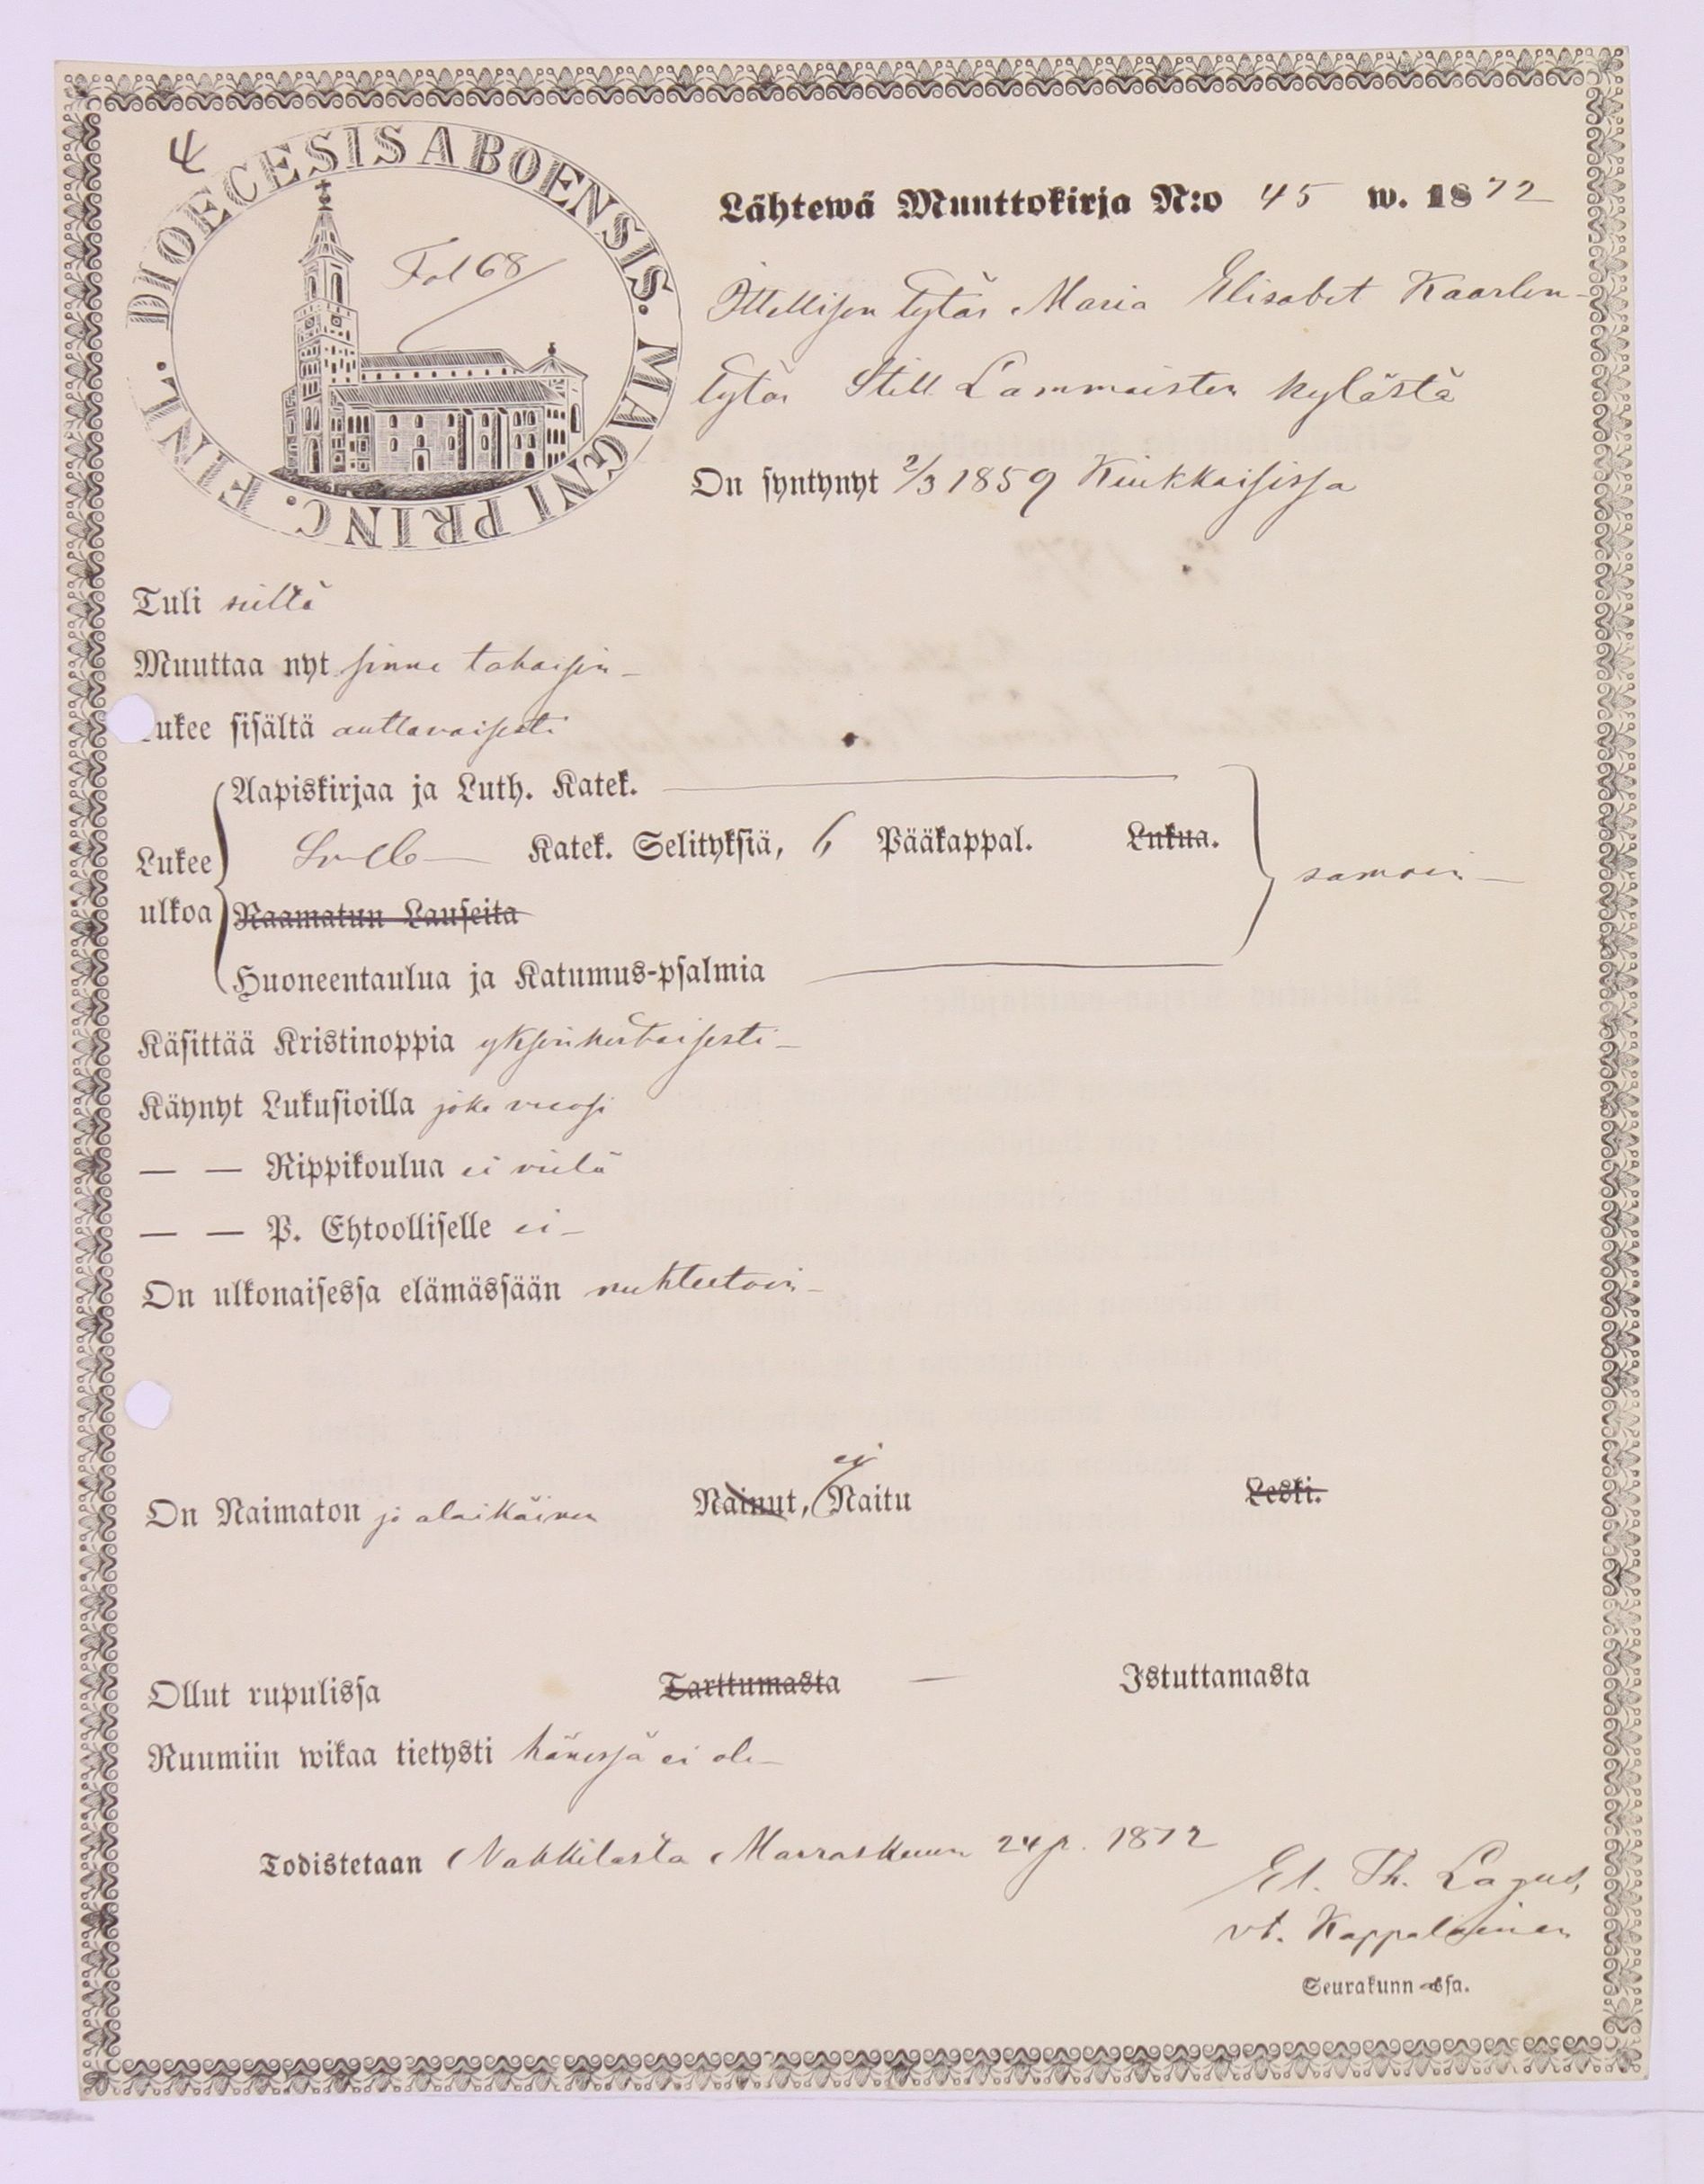 4
DIOECESIS ABOENSIS. MAGNI PRINC. FINL.
Fol 68
Lähtewä Muuttokirja N:o 45 w. 1872
Ittellisen tytär Maria Elisabet Kaarlen-
tytär Still Lammaisten kylästä
On syntynyt 2/3 1859 Kiukkaisissa
Tuli sieltä
Muuttaa nyt sinne takaisin –
Lukee sisältä auttavaisesti
Aapiskirjaa ja Luth. Katek.
Lukee ulkoa
Katek. Selityksiä, 6 Pääkappal. Lukua.
samoin –
Raamatun Lauseita
Huoneentaulua ja Katumus-psalmia
Käsittää Kristinoppia yksinkertaisesti –
Käynyt Lukusioilla joka vuosi
— — Rippikoulua ei vielä
— — P. Ehtoolliselle ei –
On ulkonaisessa elämässään nuhteetoin –
On Naimaton ja alaikäinen Nainut, ei Naitu Leski.
Ollut rupulissa Tarttumasta — Istuttamasta
Ruumiin wikaa tietysti hänessä ei ole –
Todistetaan Nakkilasta Marraskuun 24 p. 1872
Th. Lagus,
vt. Kappalainen
Seurakunnassa.